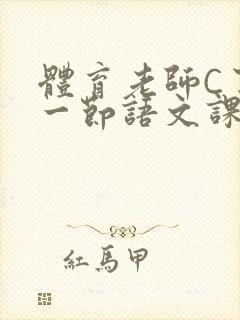 體育老師C
一節語文課
紅馬甲